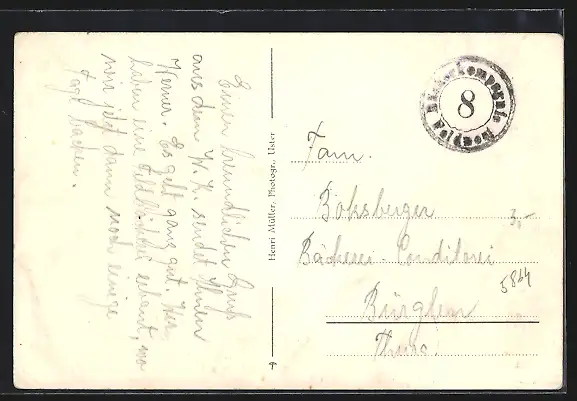 Einen freundlichen Gruss
aus dem W.K. sendet Ihnen
Werner. Es geht ganz gut. Wir
haben eine Feldbäckerei erbaut, wo
wir jetzt dann noch einige
Tage backen.
Henri Müller, Photogr., Uster
Bäcker-Kompagnie
8
Feldpost
Fam.
Boksberger
Bäckerei-Conditorei
Bürglen
Thurg.
3,-
5864